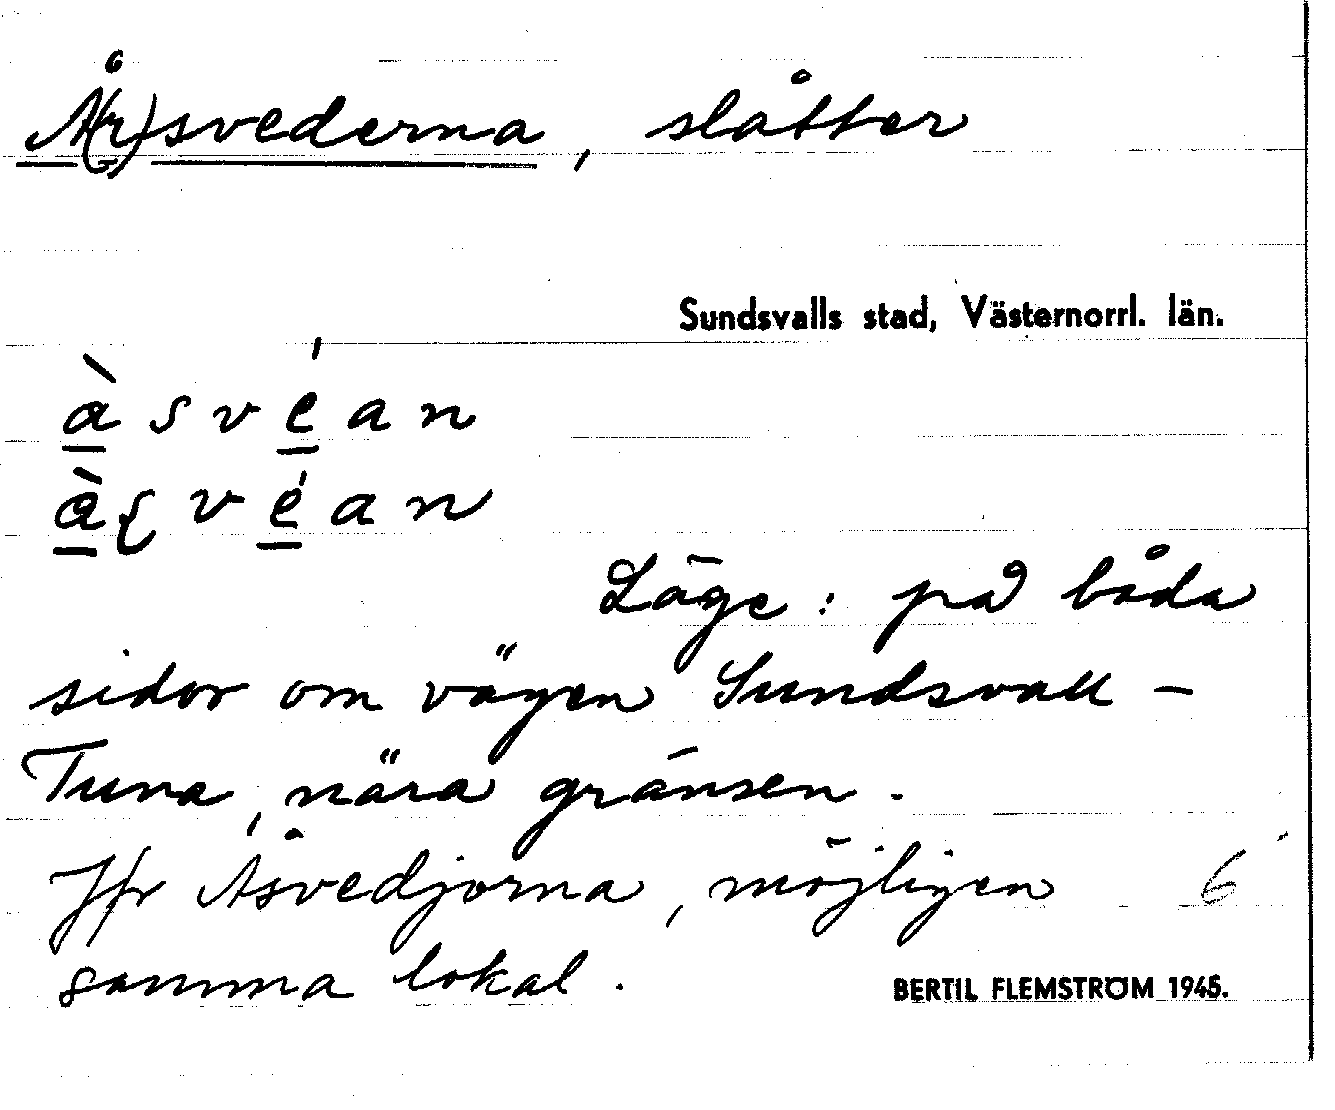 Å(r)svederna, slåtter
Sundsvalls stad, Västernorrl. län.
à s v é a n
Läge: på båda
sidor om vägen Sundsvall –
Tuna, nära gränsen.
Jfr Åsvedjorna, möjligen 6
samma lokal.
BERTIL FLEMSTRÖM 1945.